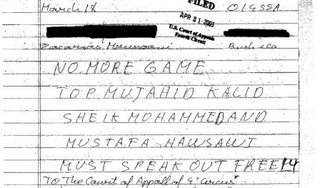 March 18
FILED
APR 21 2003
U.S. Court of Appeals
Fourth Circuit
NO MORE GAME
TOP MUJAHID KALID
SHEIK MOHAMMED AND
MUSTAFA HAWSAWI
MUST SPEAK OUT FREELY
To The Court of Appeall of 4° Circuit